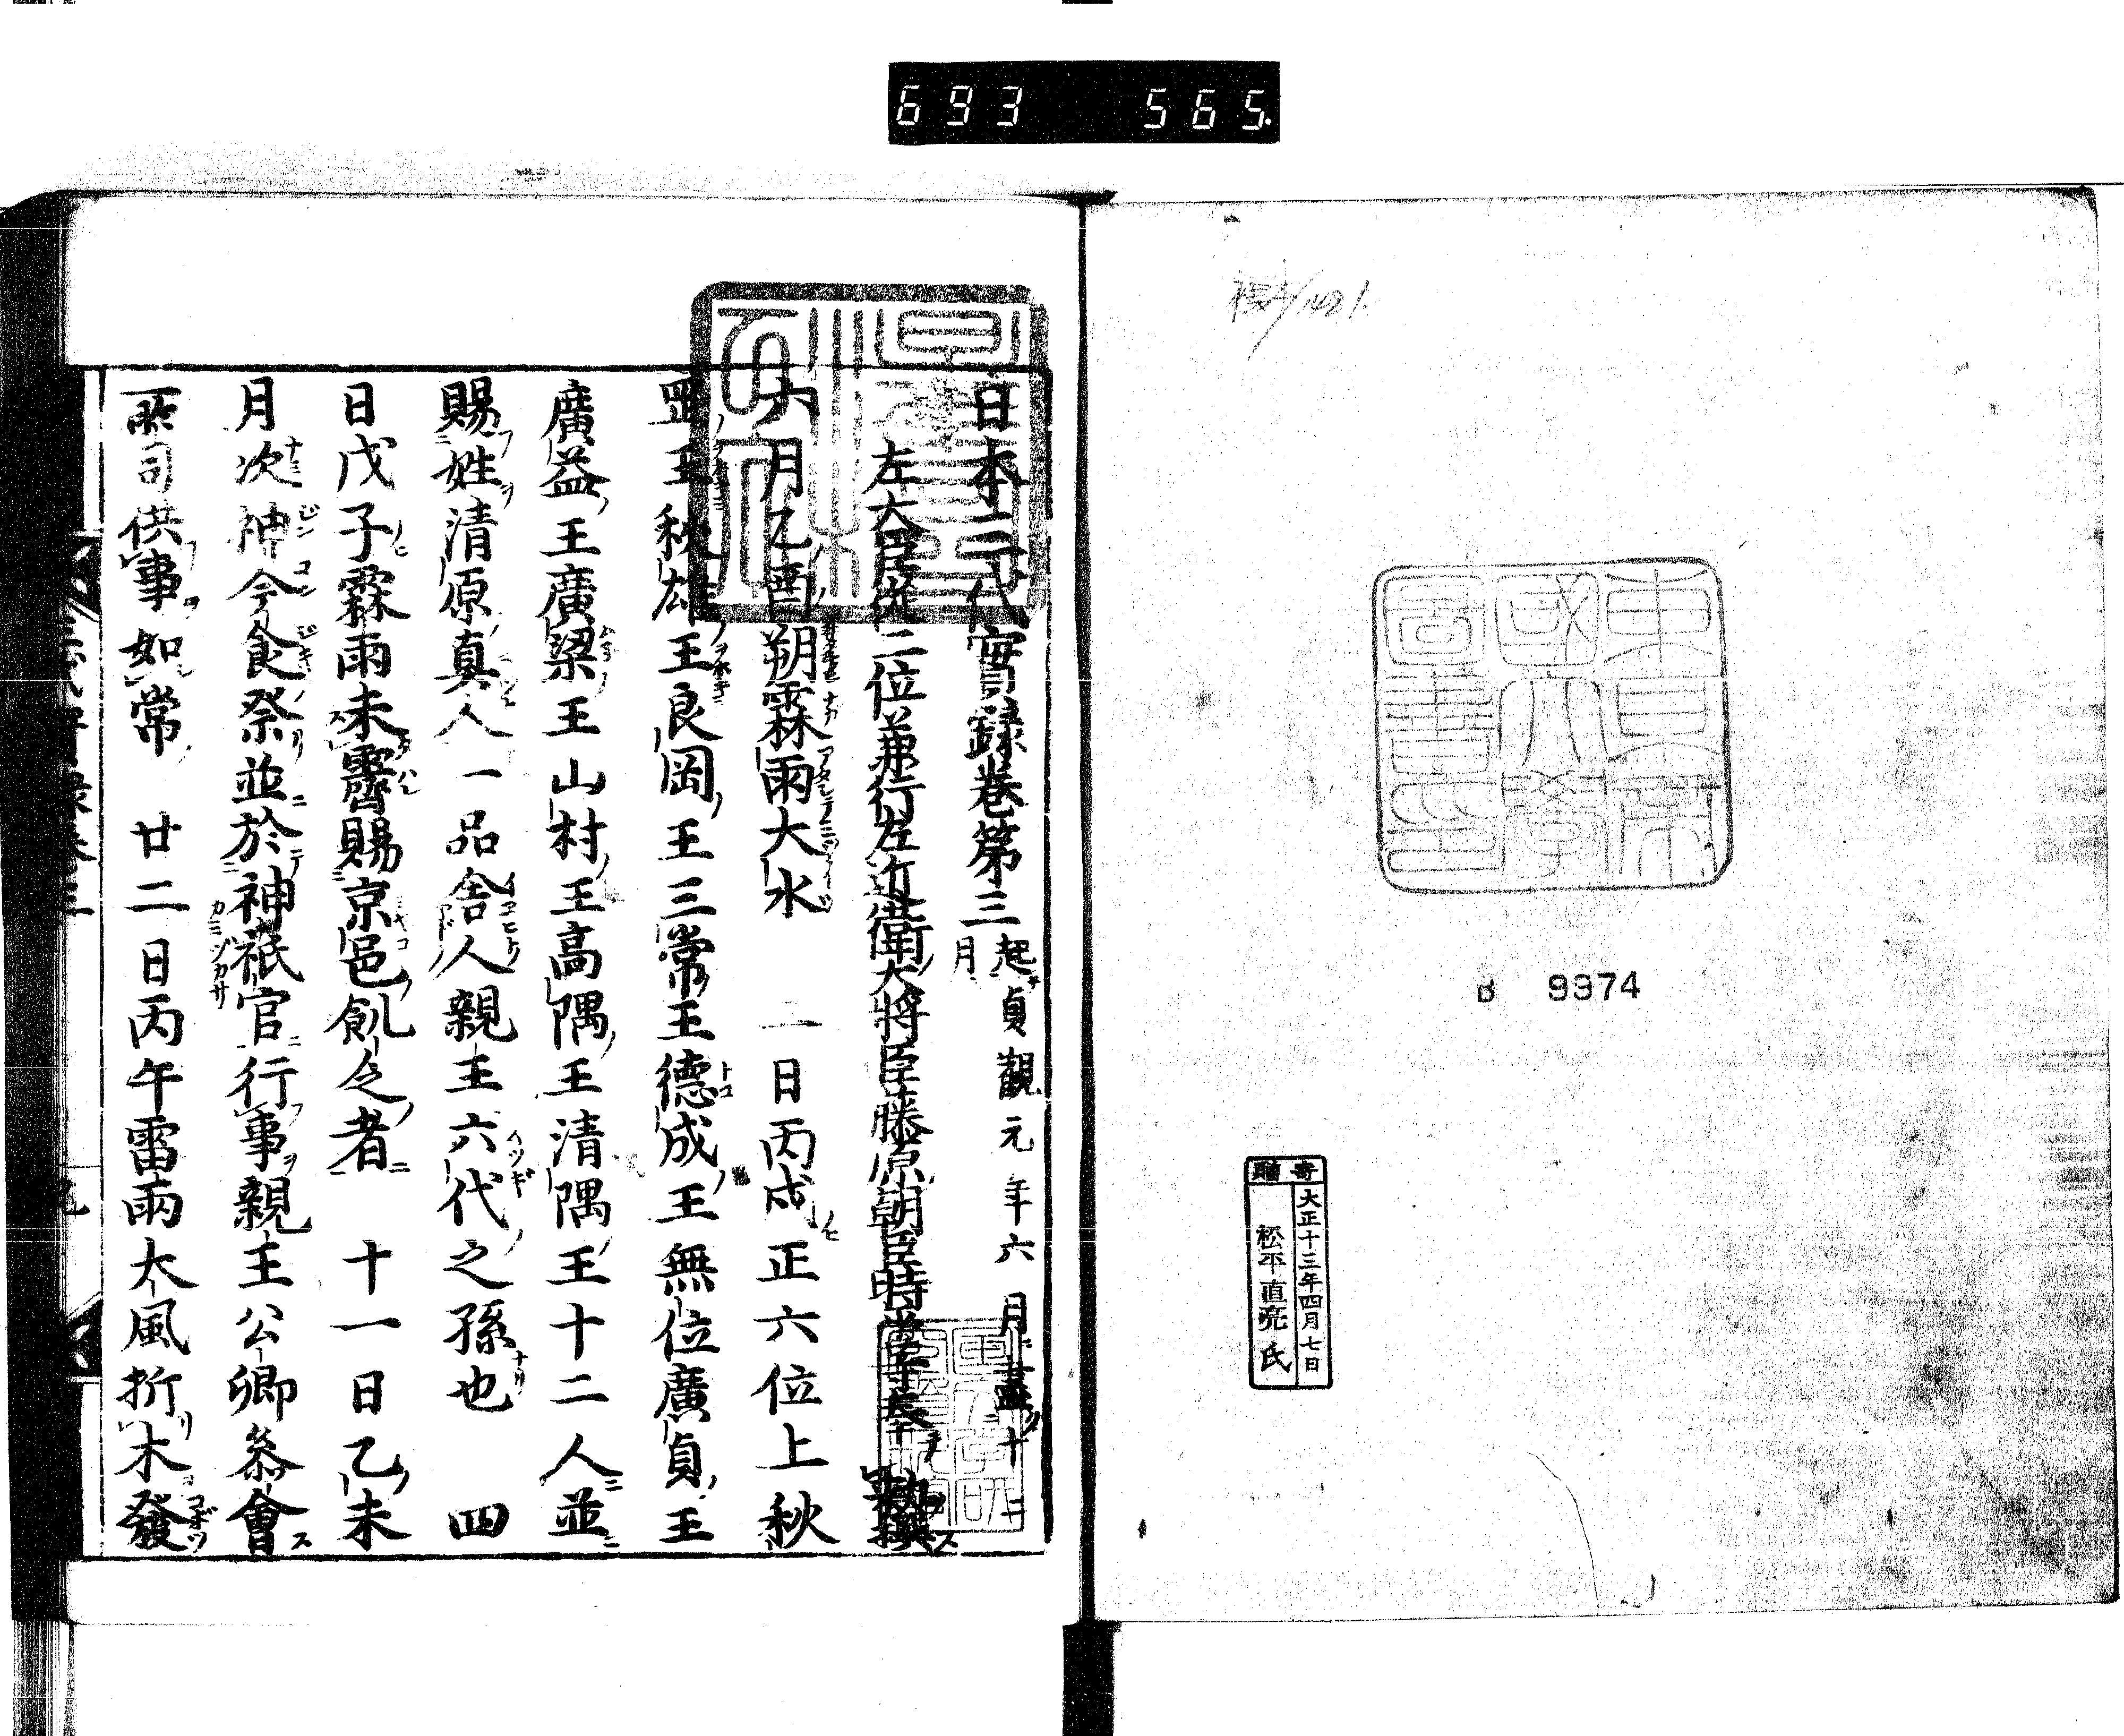 693 565.
B 9974
寄贈
大正十三年四月七日
松平直亮氏
日本三代實録巻第三 起貞觀元年六月盡十二月
左大臣從二位兼行左近衛大將臣藤原朝臣時平等奉 勅撰
六月乙酉朔霖雨大水 二日丙戌正六位上秋
岡王秋雄王良岡王三常王德成王無位廣貞王
廣益王廣梁王山村王高隅王清隅王十二人並
賜姓清原真人一品舎人親王六代之孫也 四
日戊子霖雨未霽賜京邑飢乏者 十一日乙未
月次神今食祭並於神祇官行事親王公卿叅會
所司供事如常 廿二日丙午雷雨大風折木發